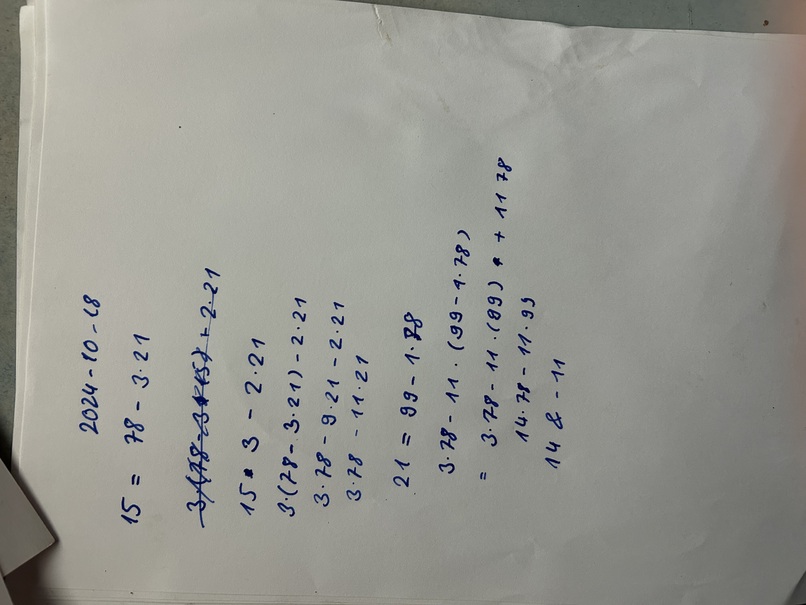 2024-10-18
15 = 78 - 3·21
3·(78 - 3·15) + 2·21
15 · 3 - 2·21
3·(78 - 3·21) - 2·21
3·78 - 9·21 - 2·21
3·78 - 11·21
21 = 99 - 1·78
3·78 - 11 · (99 - 1·78)
= 3·78 - 11·(99) + 11 78
14·78 - 11·99
14 & -11